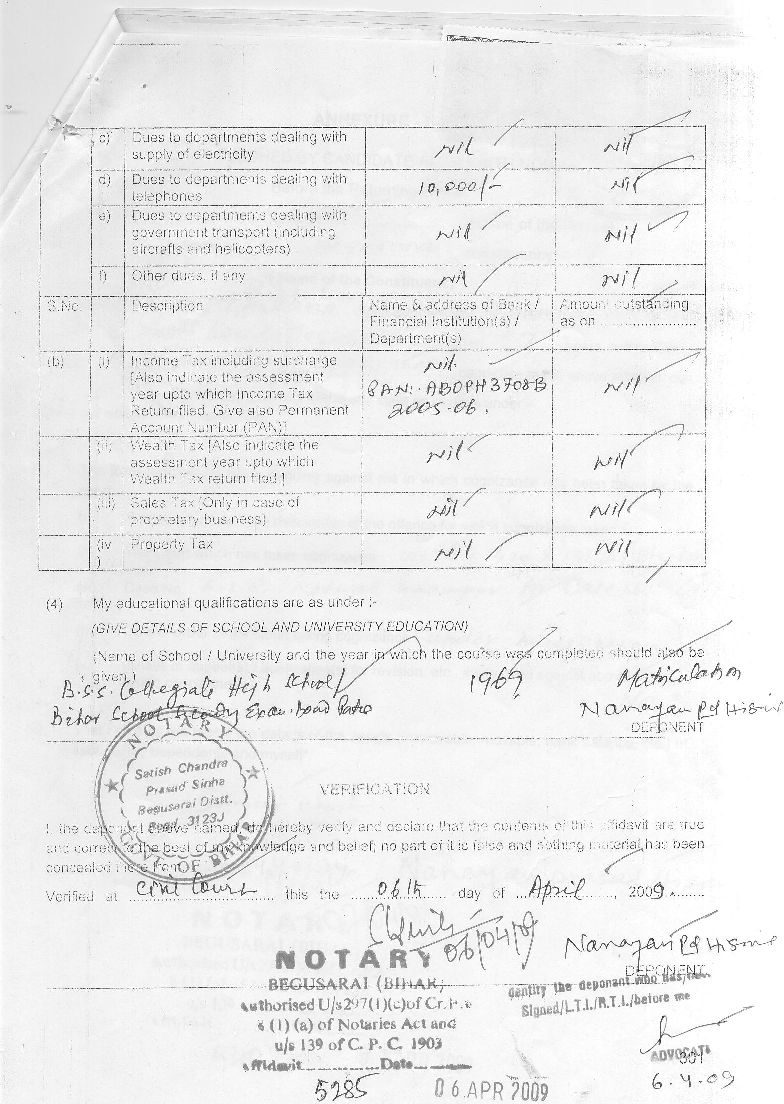 c) Dues to departments dealing with supply of electricity Nil Nil
d) Dues to departments dealing with telephones 10,000/- Nil
e) Dues to departments dealing with government transport (including aircrafts and helicopters) Nil Nil
f) Other dues, if any Nil Nil
S.No. Description Name & address of Bank / Financial Institution(s) / Department(s) Amount outstanding as on
(b) (i) Income Tax including surcharge [Also indicate the assessment year upto which Income Tax Return filed. Give also Permanent Account Number (PAN)] Nil. PAN:- ABOPH3708B 2005-06. Nil
(ii) Wealth Tax [Also indicate the assessment year upto which Wealth Tax return filed ] Nil Nil
(iii) Sales Tax [Only in case of proprietary business] Nil Nil
(iv) Property Tax Nil Nil
(4) My educational qualifications are as under :-
(GIVE DETAILS OF SCHOOL AND UNIVERSITY EDUCATION)
(Name of School / University and the year in which the course was completed should also be
given.)
B.S.S. Collegiate High School 1969 Matriculation
Bihar School Exam. Board Patna Narayan Pd
DEPONENT
NOTARY
Satish Chandra
Prasad Sinha
Begusarai Distt.
Regd. 3123J
GOVT. OF BIHAR
VERIFICATION
I, the deponent above named, do hereby verify and declare that the contents of this affidavit are true
and correct to the best of my knowledge and belief; no part of it is false and nothing material has been
concealed there from.
Verified at Civil Court this the 06th day of April, 2009.
06/04/09
Narayan Pd
DEPONENT
NOTARY
BEGUSARAI (BIHAR)
Authorised U/s297(1)(c)of Cr.P.c
8 (1) (a) of Notaries Act and
u/s 139 of C. P. C. 1903
Affidavit Date
5285 06 APR 2009
identify the deponant who has/
Signed/L.T.I./R.T.I./before me
ADVOCATE
6.4.09